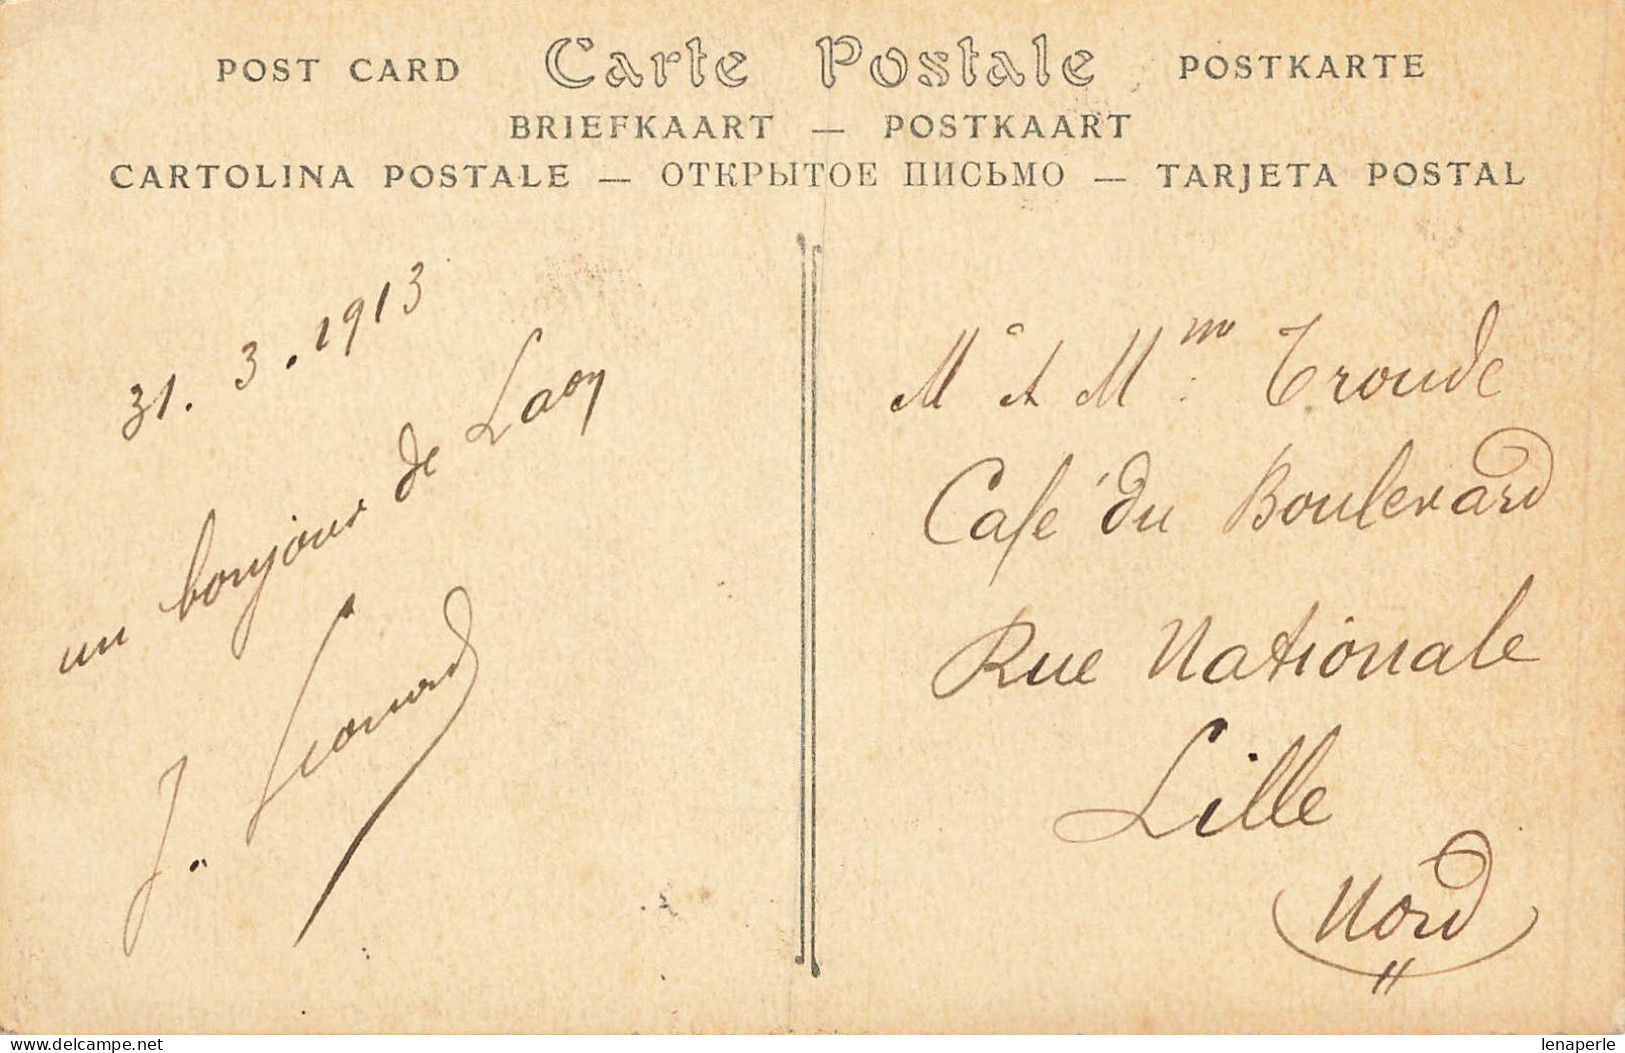 POST CARD Carte Postale POSTKARTE
BRIEFKAART — POSTKAART
CARTOLINA POSTALE — ОТКРЫТОЕ ПИСЬМО — TARJETA POSTAL
31. 3. 1913
un bonjour de Laon
J. Léonard
Mr & Mme Troude
Café du Boulevard
Rue Nationale
Lille
Nord
delcampe.net
lenaperle